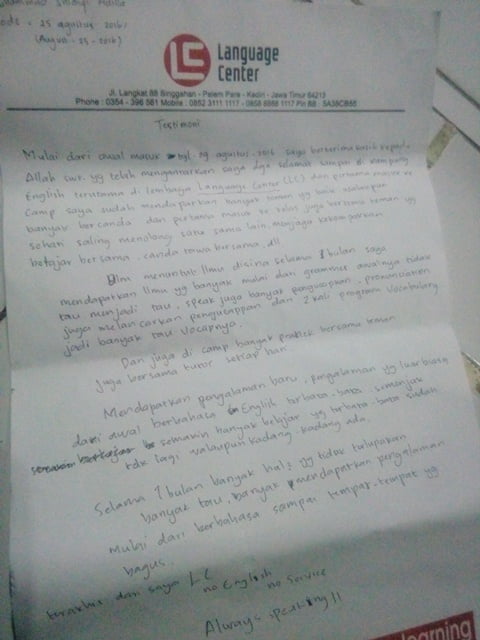 ode : 25 agustus 2016/
(Augus - 25 - 2016)
LC Language
Center
Jl. Langkat 88 Singgahan - Pelem Pare - Kediri - Jawa Timur 64213
Phone : 0354 - 396 561 Mobile : 0852 3111 1117 - 0858 1117 Pin BB : 5A38CB55
Testimoni
Mulai dari awal masuk tgl 29 agustus 2016 saya berterima kasih kepada
Allah swt. yg telah mengantarkan saya dgn selamat sampai di kampung
English terutama di lembaga Language Center (LC) dan pertama masuk ke
Camp saya sudah mendapatkan banyak teman yg baik walaupun
banyak bercanda dan pertama masuk ke juga bertemu teman yg
sehati saling menolong satu sama lain, menjaga kekompakan
belajar bersama, canda tawa bersama, dll
Dlm menuntut Ilmu disina selama 1 bulan saya
mendapatkan Ilmu yg banyak mulai dari grammer awalnya tidak
tau menjadi tau, speak juga banyak pengucapan, pronunciation
juga melancarkan pengucappan dan 2 kali program Vocabulary
jadi banyak tau Vocapnya.
Dan juga di camp banyak praktek bersama teman
juga bersama tutor setiap hari
Mendapatkan pengalaman baru, pengalaman yg luar biasa
dari awal berbahasa English terbata-bata semenjak
semakin banyak belajar yg terbata-bata sudah
tdk lagi walaupun kadang-kadang ada.
Selama 1 bulan banyak hal2 yg tidak terlupakan
banyak tau, banyak mendapatkan pengalaman
mulai dari berbahasa sampai tempat-tempat yg
bagus.
terakhir dari saya LC
no English no service
Always speaking !!
learning